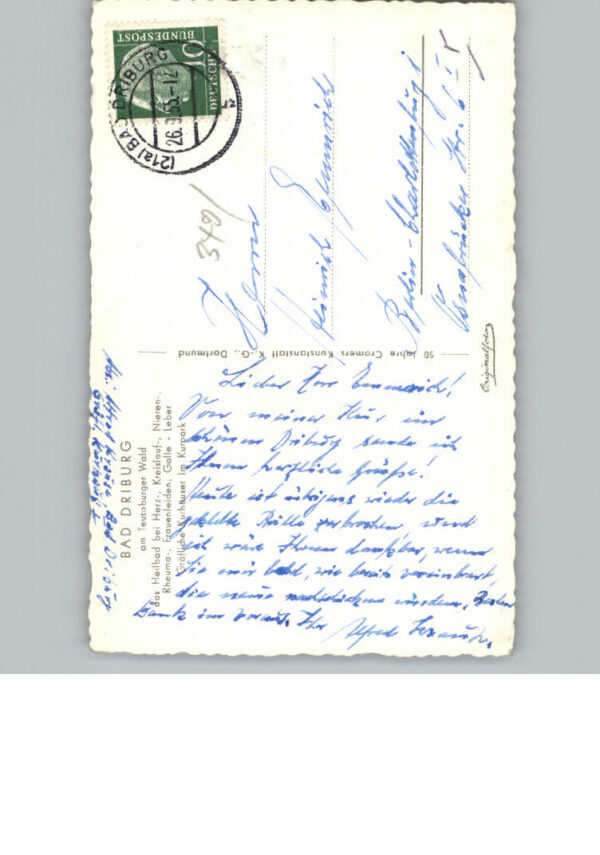 DEUTSCHE
BUNDESPOST
10
(21a) BAD DRIBURG
26.9.55.-12
3491
Herrn
Heinrich Emmerich
Berlin-Charlottenburg
Str. 6
50 Jahre Cramers Kunstanstalt K.-G., Dortmund
Originalfoto
Lieber Herr Emmerich!
Von meiner Kur im
schönen Driburg sende ich
Ihnen herzliche Grüße!
Heute ist übrigens wieder die
Brille zerbrochen und
ich wäre Ihnen dankbar, wenn
Sie mir bald, wie bereits vereinbart,
die neue würden. Besten
Dank im voraus. Ihr Alfred
BAD DRIBURG
am Teutoburger Wald
das Heilbad bei Herz-, Kreislauf-, Nieren-,
Rheuma-, Frauenleiden, Galle - Leber
Gräfliche Kurhäuser im Kurpark
Abs. Alfred Bad Driburg
Gräfl. Kurhaus